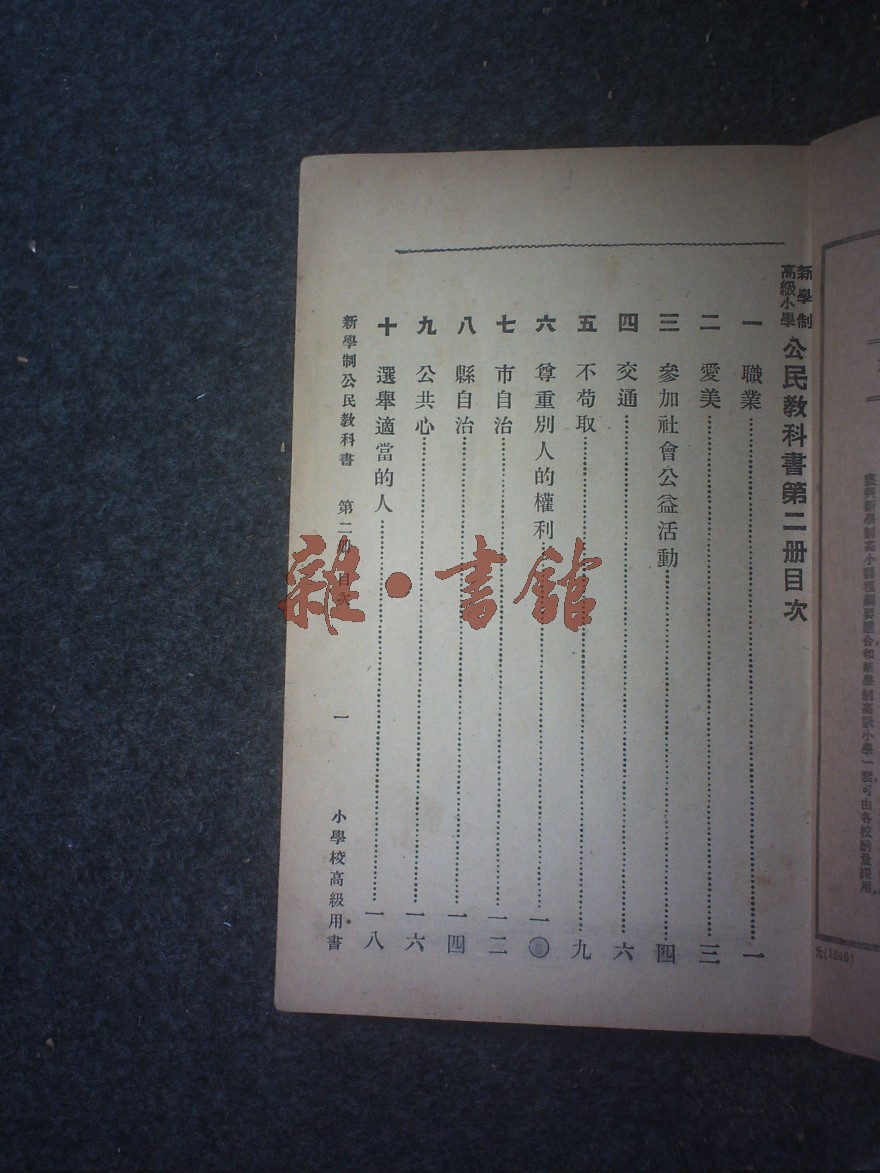 新學制
高級小學
公民教科書第二册目次
一 職業 一
二 愛美 三
三 參加社會公益活動 四
四 交通 六
五 不苟取 九
六 尊重別人的權利 一〇
七 市自治 一二
八 縣自治 一四
九 公共心 一六
十 選舉適當的人 一八
新學制公民教科書 第二册 目次 一 小學校高級用書
雜·書館
元(1046)